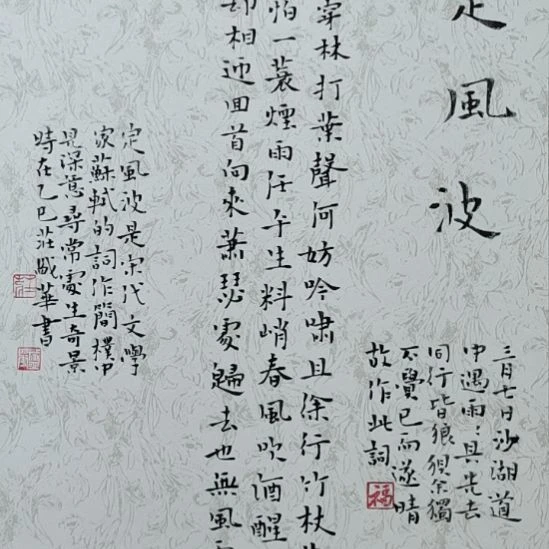 定風波
三月七日沙湖道
中遇雨〻具先去
同行皆狼狽余獨
不覺已而遂晴
故作此詞
福
穿林打葉聲何妨吟嘯且徐行竹杖
怕一蓑煙雨任平生料峭春風吹酒醒
却相迎回首向來蕭瑟處歸去也無風
定風波是宋代文學
家蘇軾的詞作簡樸中
見深意尋常處生奇景
時在乙巳莊華書
莊